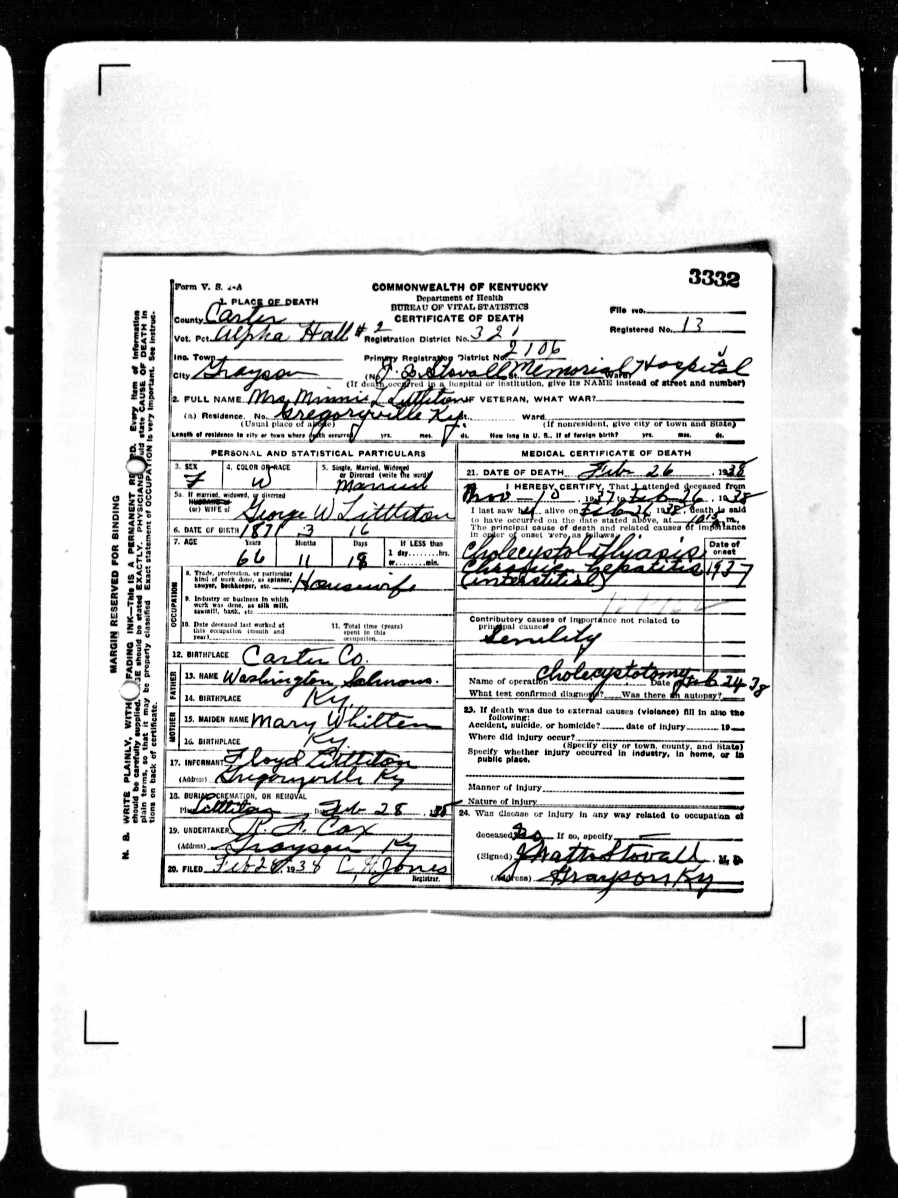 3332
Form V. S. 1-A
COMMONWEALTH OF KENTUCKY
Department of Health
BUREAU OF VITAL STATISTICS
CERTIFICATE OF DEATH
File No.
Registered No. 13
1. PLACE OF DEATH
County Carter
Vot. Pct. Alpha Hall #2 Registration District No. 321
Inc. Town Primary Registration District No. 2106
City Grayson (No. Stovall Memorial Hospital St. Ward)
(If death occurred in a hospital or institution, give its NAME instead of street and number)
2. FULL NAME Mrs. Minnie L Littleton IF VETERAN, WHAT WAR?
(a) Residence. No. Gregoryville Ky St. Ward
(Usual place of abode) (If nonresident, give city or town and State)
Length of residence in city or town where death occurred yrs. mos. ds. How long in U. S., if of foreign birth? yrs. mos. ds.
PERSONAL AND STATISTICAL PARTICULARS
3. SEX F
4. COLOR OR RACE W
5. Single, Married, Widowed or Divorced (write the word) Married
5a. If married, widowed, or divorced
HUSBAND of
(or) WIFE of George W Littleton
6. DATE OF BIRTH 1871 3 16
7. AGE Years 66 Months 11 Days 18 If LESS than 1 day hrs. or min.
OCCUPATION
8. Trade, profession, or particular kind of work done, as spinner, sawyer, bookkeeper, etc. Housewife
9. Industry or business in which work was done, as silk mill, sawmill, bank, etc
10. Date deceased last worked at this occupation (month and year)
11. Total time (years) spent in this occupation
12. BIRTHPLACE Carter Co.
FATHER
13. NAME Washington Salmons.
14. BIRTHPLACE Ky.
MOTHER
15. MAIDEN NAME Mary Whitten
16. BIRTHPLACE Ky
17. INFORMANT Floyd Littleton
(Address) Gregoryville Ky
18. BURIAL, CREMATION, OR REMOVAL
Place Littleton Date Feb 28, 1938
19. UNDERTAKER R. F. Cox
(Address) Grayson Ky
20. FILED Feb 28, 1938 C. H. Jones
Registrar.
MEDICAL CERTIFICATE OF DEATH
21. DATE OF DEATH Feb 26, 1938
I HEREBY CERTIFY, That I attended deceased from
Nov - 10, 1937 to Feb 26, 1938
I last saw h alive on Feb 26 1938, death is said
to have occurred on the date stated above, at m.
The principal cause of death and related causes of importance
in order of onset were as follows:
Date of onset
Cholecystolithiasis
Chronic hepatitis 1937
(interstitial)
Contributory causes of importance not related to
principal cause:
Senility
Name of operation Cholecystotomy Date of Feb 24-38
What test confirmed diagnosis? Was there an autopsy?
23. If death was due to external causes (violence) fill in also the
following:
Accident, suicide, or homicide? date of injury 19
Where did injury occur?
(Specify city or town, county, and State)
Specify whether injury occurred in industry, in home, or in
public place.
Manner of injury
Nature of injury
24. Was disease or injury in any way related to occupation of
deceased? No If so, specify
(Signed) J Watts Stovall, M. D.
(Address) Grayson Ky
MARGIN RESERVED FOR BINDING
N. B. WRITE PLAINLY, WITH FADING INK—THIS IS A PERMANENT RECORD. Every item of information
should be carefully supplied. AGE should be stated EXACTLY. PHYSICIANS should state CAUSE OF DEATH in
plain terms, so that it may be properly classified. Exact statement of OCCUPATION is very important. See instruc-
tions on back of certificate.